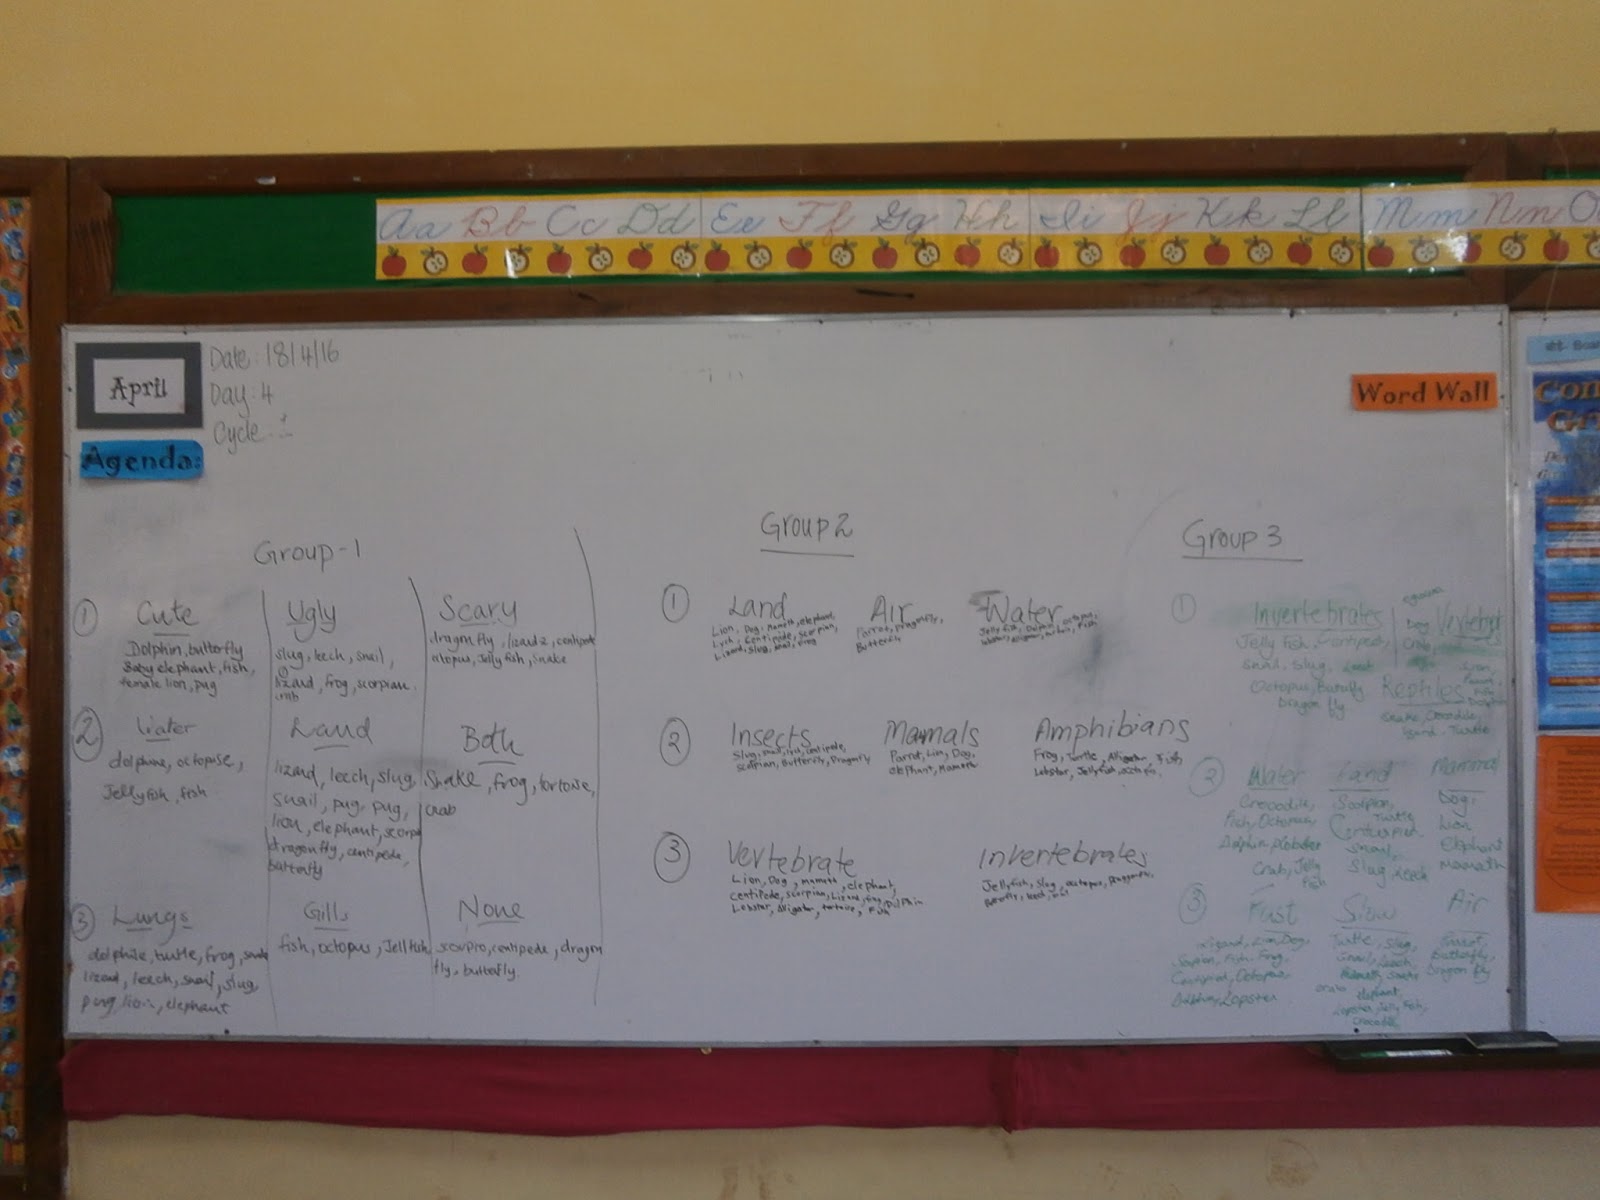 Aa Bb Cc Dd Ee Ff Gg Hh Ii Jj Kk Ll Mm Nn
April
Date: 18/4/16
Day: 4
Cycle:
Agenda:
Word Wall
Group-1
① Cute
Dolphin, butterfly
Baby elephant, fish,
female lion, pug
Ugly
slug, leech, snail,
lizard, frog, scorpian
crab
Scary
dragon fly, lizard, centipede
octopus, Jelly fish, snake
② Water
dolphine, octopuse,
Jelly fish, fish
Land
lizard, leech, slug,
snail, pug, pug,
lion, elephant, scorp
dragonfly, centipede,
butterfly
Both
Snake, frog, tortoise,
crab
③ Lungs
dolphine, turtle, frog, snake
lizard, leech, snail, slug,
pug, lion, elephant
Gills
fish, octopus, Jellfish
None
scorpio, centipede, dragon
fly, butterfly
Group 2
① Land
Lion, Dog, Mamoth, elephant,
Leech, Centipede, scorpian,
Lizard, Slug, snail, frog
Air
Parrot, Dragonfly,
Butterfly
Water
Jelly fish, Dolphin, octopus,
fish
② Insects
Slug, snail, centipede,
scorpian, Butterfly, Dragonfly
Mamals
Parrot, Lion, Dog,
elephant, Mamoth
Amphibians
Frog, Turtle, Alligator, Fish
Lobster, Jellyfish, octopus
③ Vertebrate
Lion, Dog, mamoth, elephant,
Centipede, scorpian, Lizard, frog, Dolphin
Lobster, Alligator, tortoise, Fish
Invertebrates
Jellyfish, Slug, octopus, Dragonfly,
Group 3
① Invertebrates
Jelly Fish, Centiped,
Snail, Slug,
Octopus, Butterfly
Dragon fly
Dog
Crab,
Vertebrat
Lion,
Parrot,
Fish
Dolphin
Reptiles
Snake, Crocodile,
lizard, Turtle
② Water
Crocodile,
Fish, Octopus
Dolphin,
Crab, Jelly
Fish
Land
Scorpion,
Turtle
Snail,
Slug, Leech
Mammal
Dog,
Lion
Elephant
Mamoth
③ Fast
Lizard, Lion, Dog,
Fish, Frog,
Octopus,
Lopster
Slow
Turtle, Slug,
Snail, Leech
Snake
crab
elephant,
Lopster, Jelly Fish,
Crocodile
Air
Parrot,
Butterfly,
Dragon fly